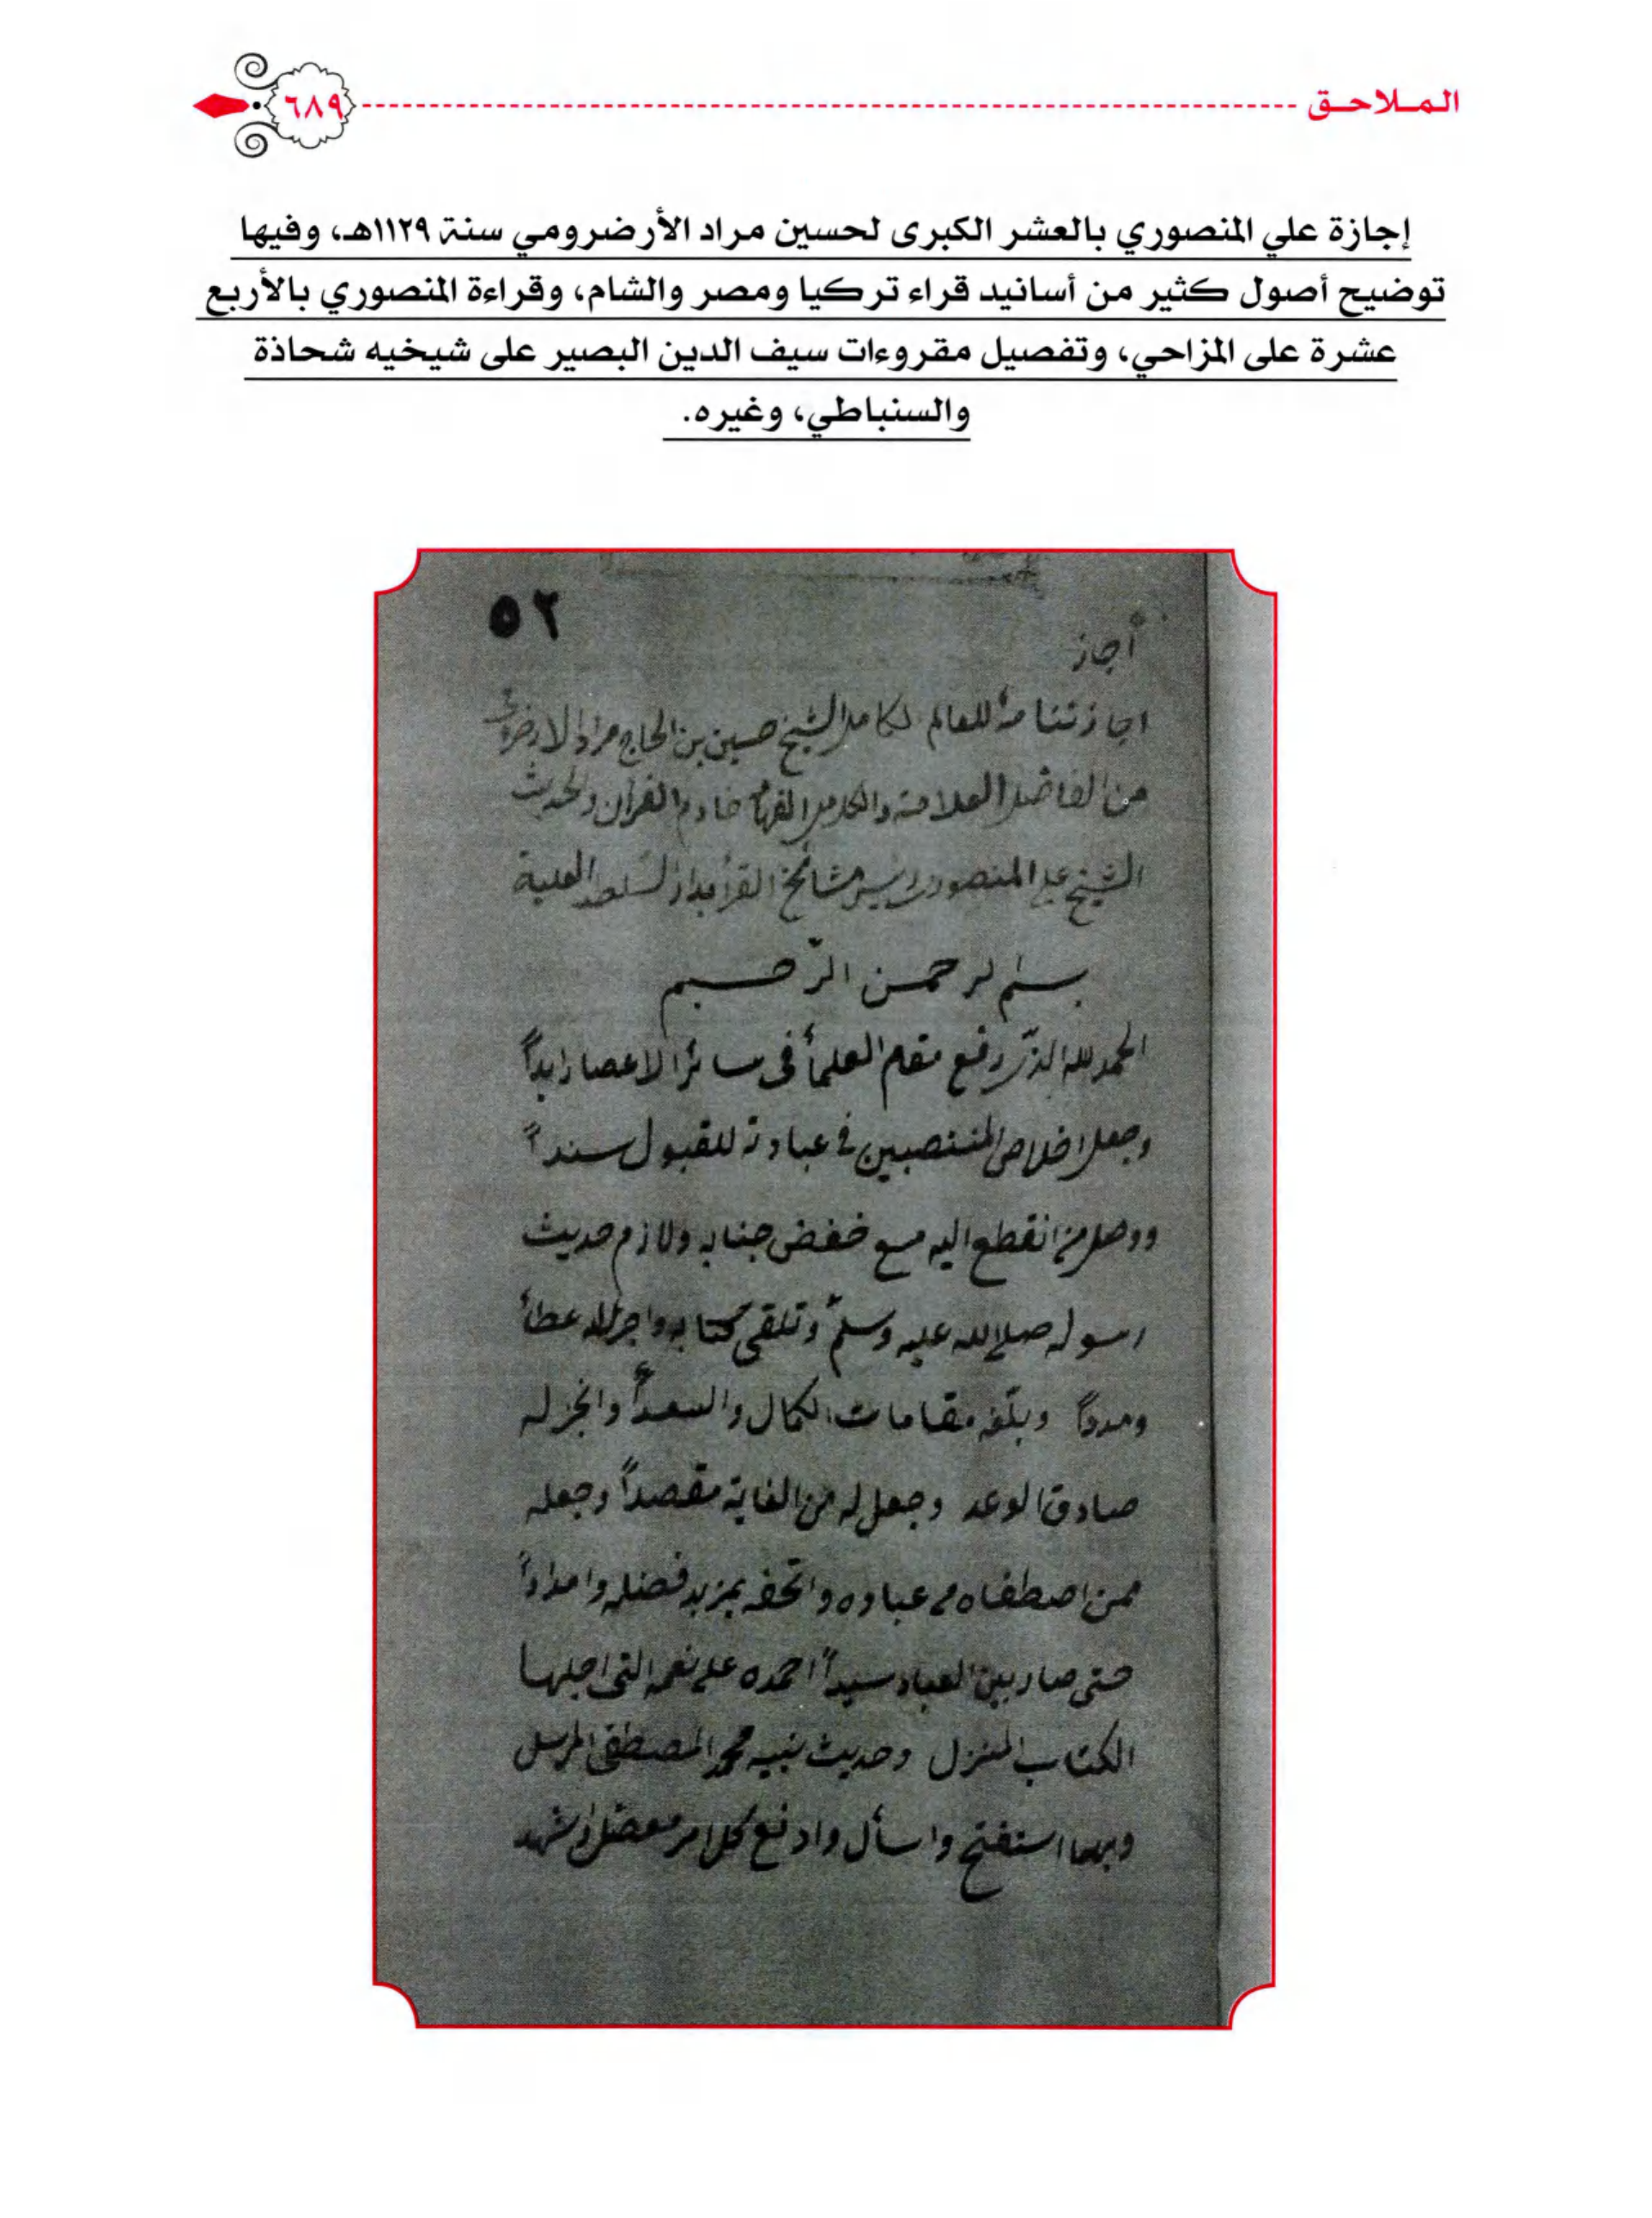 الملاحق
٦٨٩
إجازة علي المنصوري بالعشر الكبرى لحسين مراد الأرضرومي سنة ١١٢٩هـ، وفيها
توضيح أصول كثير من أسانيد قراء تركيا ومصر والشام، وقراءة المنصوري بالأربع
عشرة على المزاحي، وتفصيل مقروءات سيف الدين البصير على شيخيه شحاذة
والسنباطي، وغيره.
٥٢
أجاز
اجازتنا مہ للعالم الكامل الشيخ حسين بن الحاج مراد الارضرومى
من الفاضل العلامة والكامل الفهام خادم القرآن والحديث
الشيخ على المنصورى رئيس مشائخ القرأ بدار السلطنة العلية
بسم الرحمن الرّحيم
الحمد لله الذى رفع مقام العلمأ فى سائر الاعصار ابداً
وجعل اخلاص المنتصبين فى عبادته للقبول سنداً
ووصل من انقطع اليه مع خفض جنابه ولازم حديث
رسوله صلى الله عليه وسلم وتلقى كتابه واجزل له عطأ
ومدداً وبلّغه مقامات الكمال والسعدأ وانجز له
صادق الوعد وجعل له من الغاية مقصداً وجعله
ممن اصطفاه من عباده واتحفه بمزيد فضله وامداداً
حتى صار بين العباد سيداً احمده على نعمه التى اجلها
الكتاب المنزل وحديث نبيه محمد المصطفى المرسل
وبهما استفتح واسأل وادفع كل امر معضل واشهد